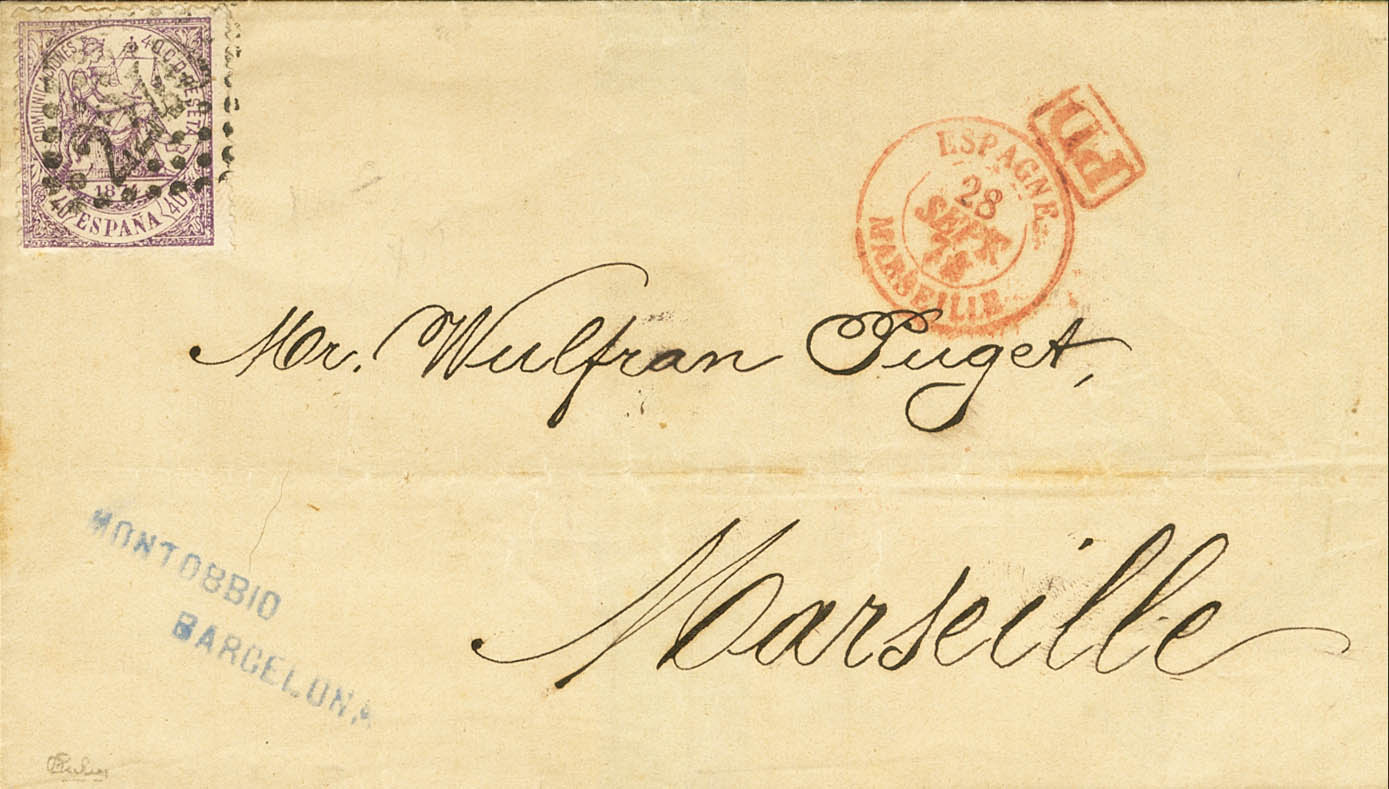 COMUNICACIONES 40 C. DE PESETA
40 ESPAÑA 40
PD
ESPAGNE
28
SEPT
MARSEILLE
Mr. Wulfran Puget,
Marseille
MONTOBBIO
BARCELONA